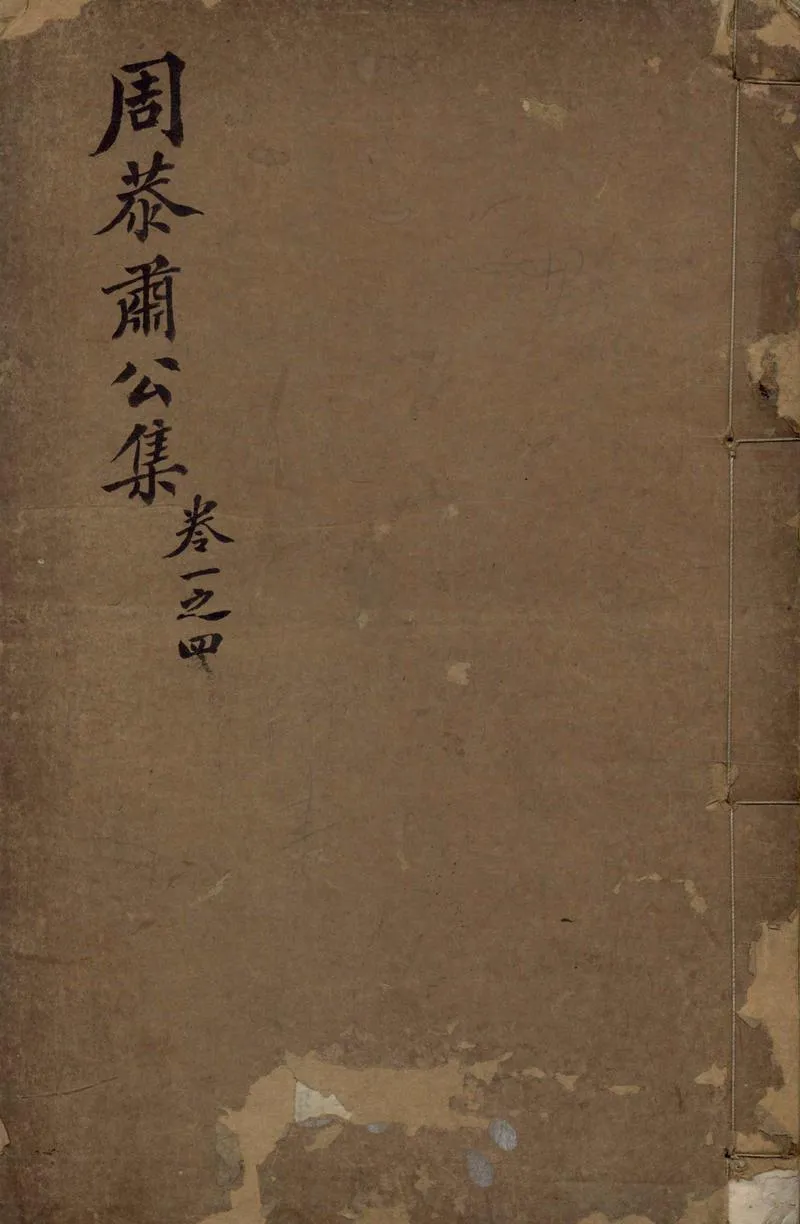 周恭肅公集
卷一之四